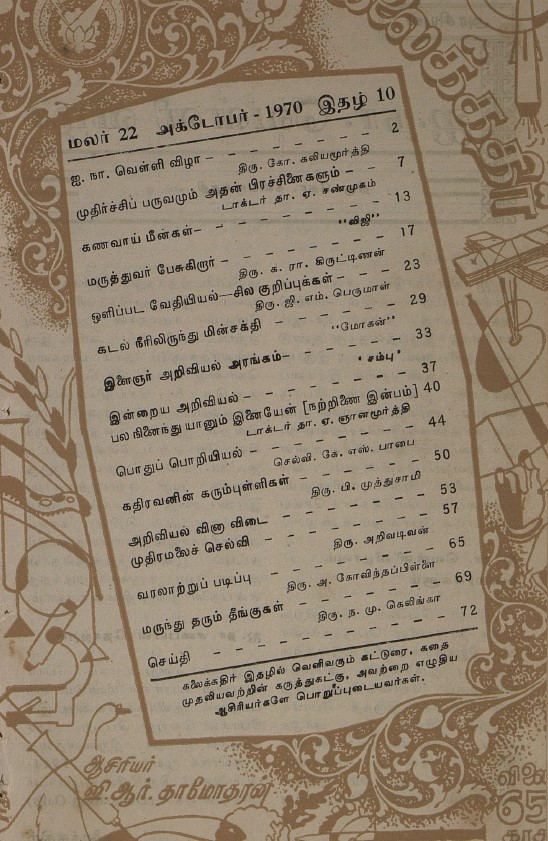 கலைக்கதிர்
மலர் 22 அக்டோபர் - 1970 இதழ் 10
ஐ. நா. வெள்ளி விழா – – – – – – – 2
திரு. கோ. கலியமூர்த்தி
முதிர்ச்சிப் பருவமும் அதன் பிரச்சினைகளும் – – 7
டாக்டர் தா. ஏ. சண்முகம்
கணவாய் மீன்கள்– – – – – – – 13
"விஜி"
மருத்துவர் பேசுகிறார் – – – – – – 17
திரு. க. ரா. கிருட்டிணன்
ஒளிப்பட வேதியியல்—சில குறிப்புக்கள் – – – 23
திரு. ஜி. எம். பெருமாள்
கடல் நீரிலிருந்து மின்சக்தி – – – – – 29
"மோகன்"
இளைஞர் அறிவியல் அரங்கம்– – – – – 33
'சம்பு'
இன்றைய அறிவியல் – – – – – – – 37
பல நினைந்து யானும் இணையேன் [நற்றிணை இன்பம்] 40
டாக்டர் தா. ஏ. ஞானமூர்த்தி
பொதுப் பொறியியல் – – – – – – – 44
செல்வி. கே. எஸ். பாபை
கதிரவனின் கரும்புள்ளிகள் – – – – – 50
திரு. பி. முத்துசாமி
அறிவியல் வினா விடை – – – – – – 53
முதிரமலைச் செல்வி – – – – – – 57
திரு. அறிவடிவன்
வரலாற்றுப் படிப்பு – – – – – – – 65
திரு. அ. கோவிந்தப்பிள்ளை
மருந்து தரும் தீங்குகள் – – – – – – 69
திரு. ந. மு. கெலிங்கா
செய்தி – – – – – – – – – 72
கலைக்கதிர் இதழில் வெளிவரும் கட்டுரை, கதை
முதலியவற்றின் கருத்துகட்கு, அவற்றை எழுதிய
ஆசிரியர்களே பொறுப்புடையவர்கள்.
ஆசிரியர்
ஜி.ஆர். தாமோதரன்
விலை
65
காசு